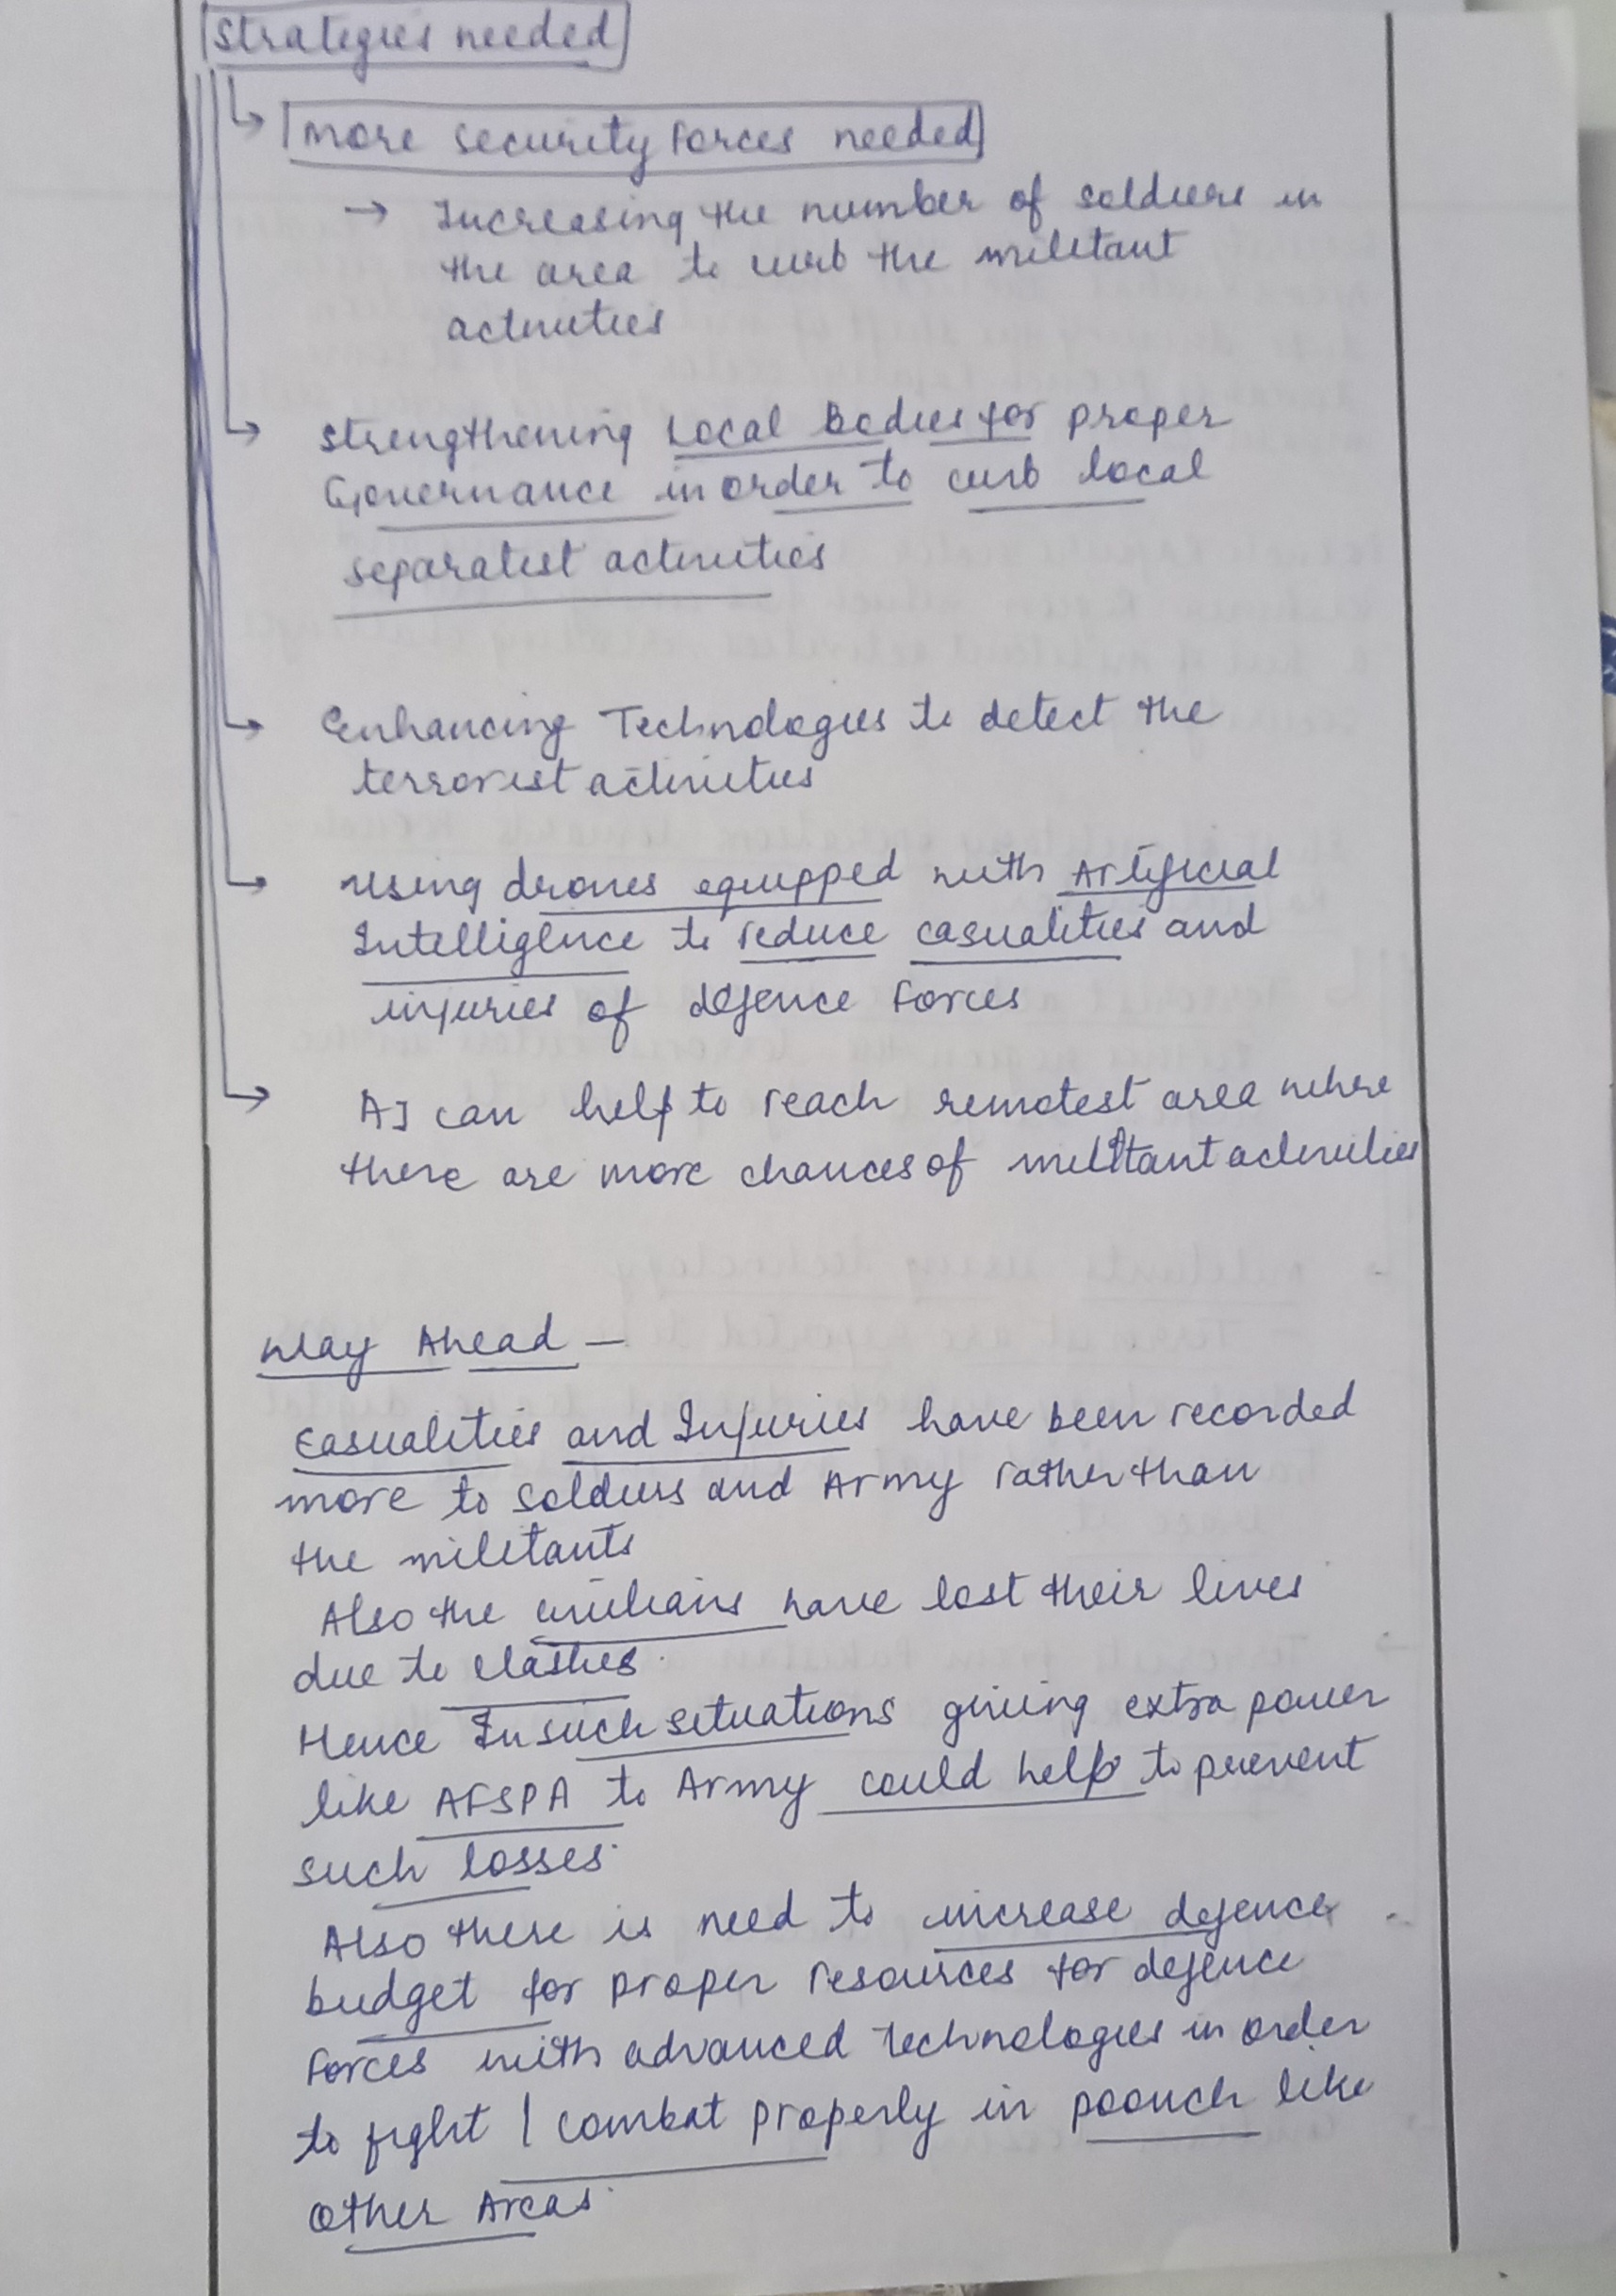 Strategies needed
More security Forces needed
→ Increasing the number of soldiers in
the area to curb the militant
activities
Strengthening Local Bodies for proper
Governance in order to curb local
separatist activities
Enhancing Technologies to detect the
terrorist activities
Using drones equipped with Artificial
Intelligence to reduce casualities and
injuries of defence Forces
AI can help to reach remotest area where
there are more chances of militant activities
Way Ahead —
Casualities and Injuries have been recorded
more to soldiers and Army rather than
the militants
Also the civilians have lost their lives
due to clashes.
Hence In such situations giving extra power
like AFSPA to Army could help to prevent
such losses.
Also there is need to increase defence
budget for proper resources for defence
Forces with advanced technologies in order
to fight / combat properly in poonch like
Other Areas.